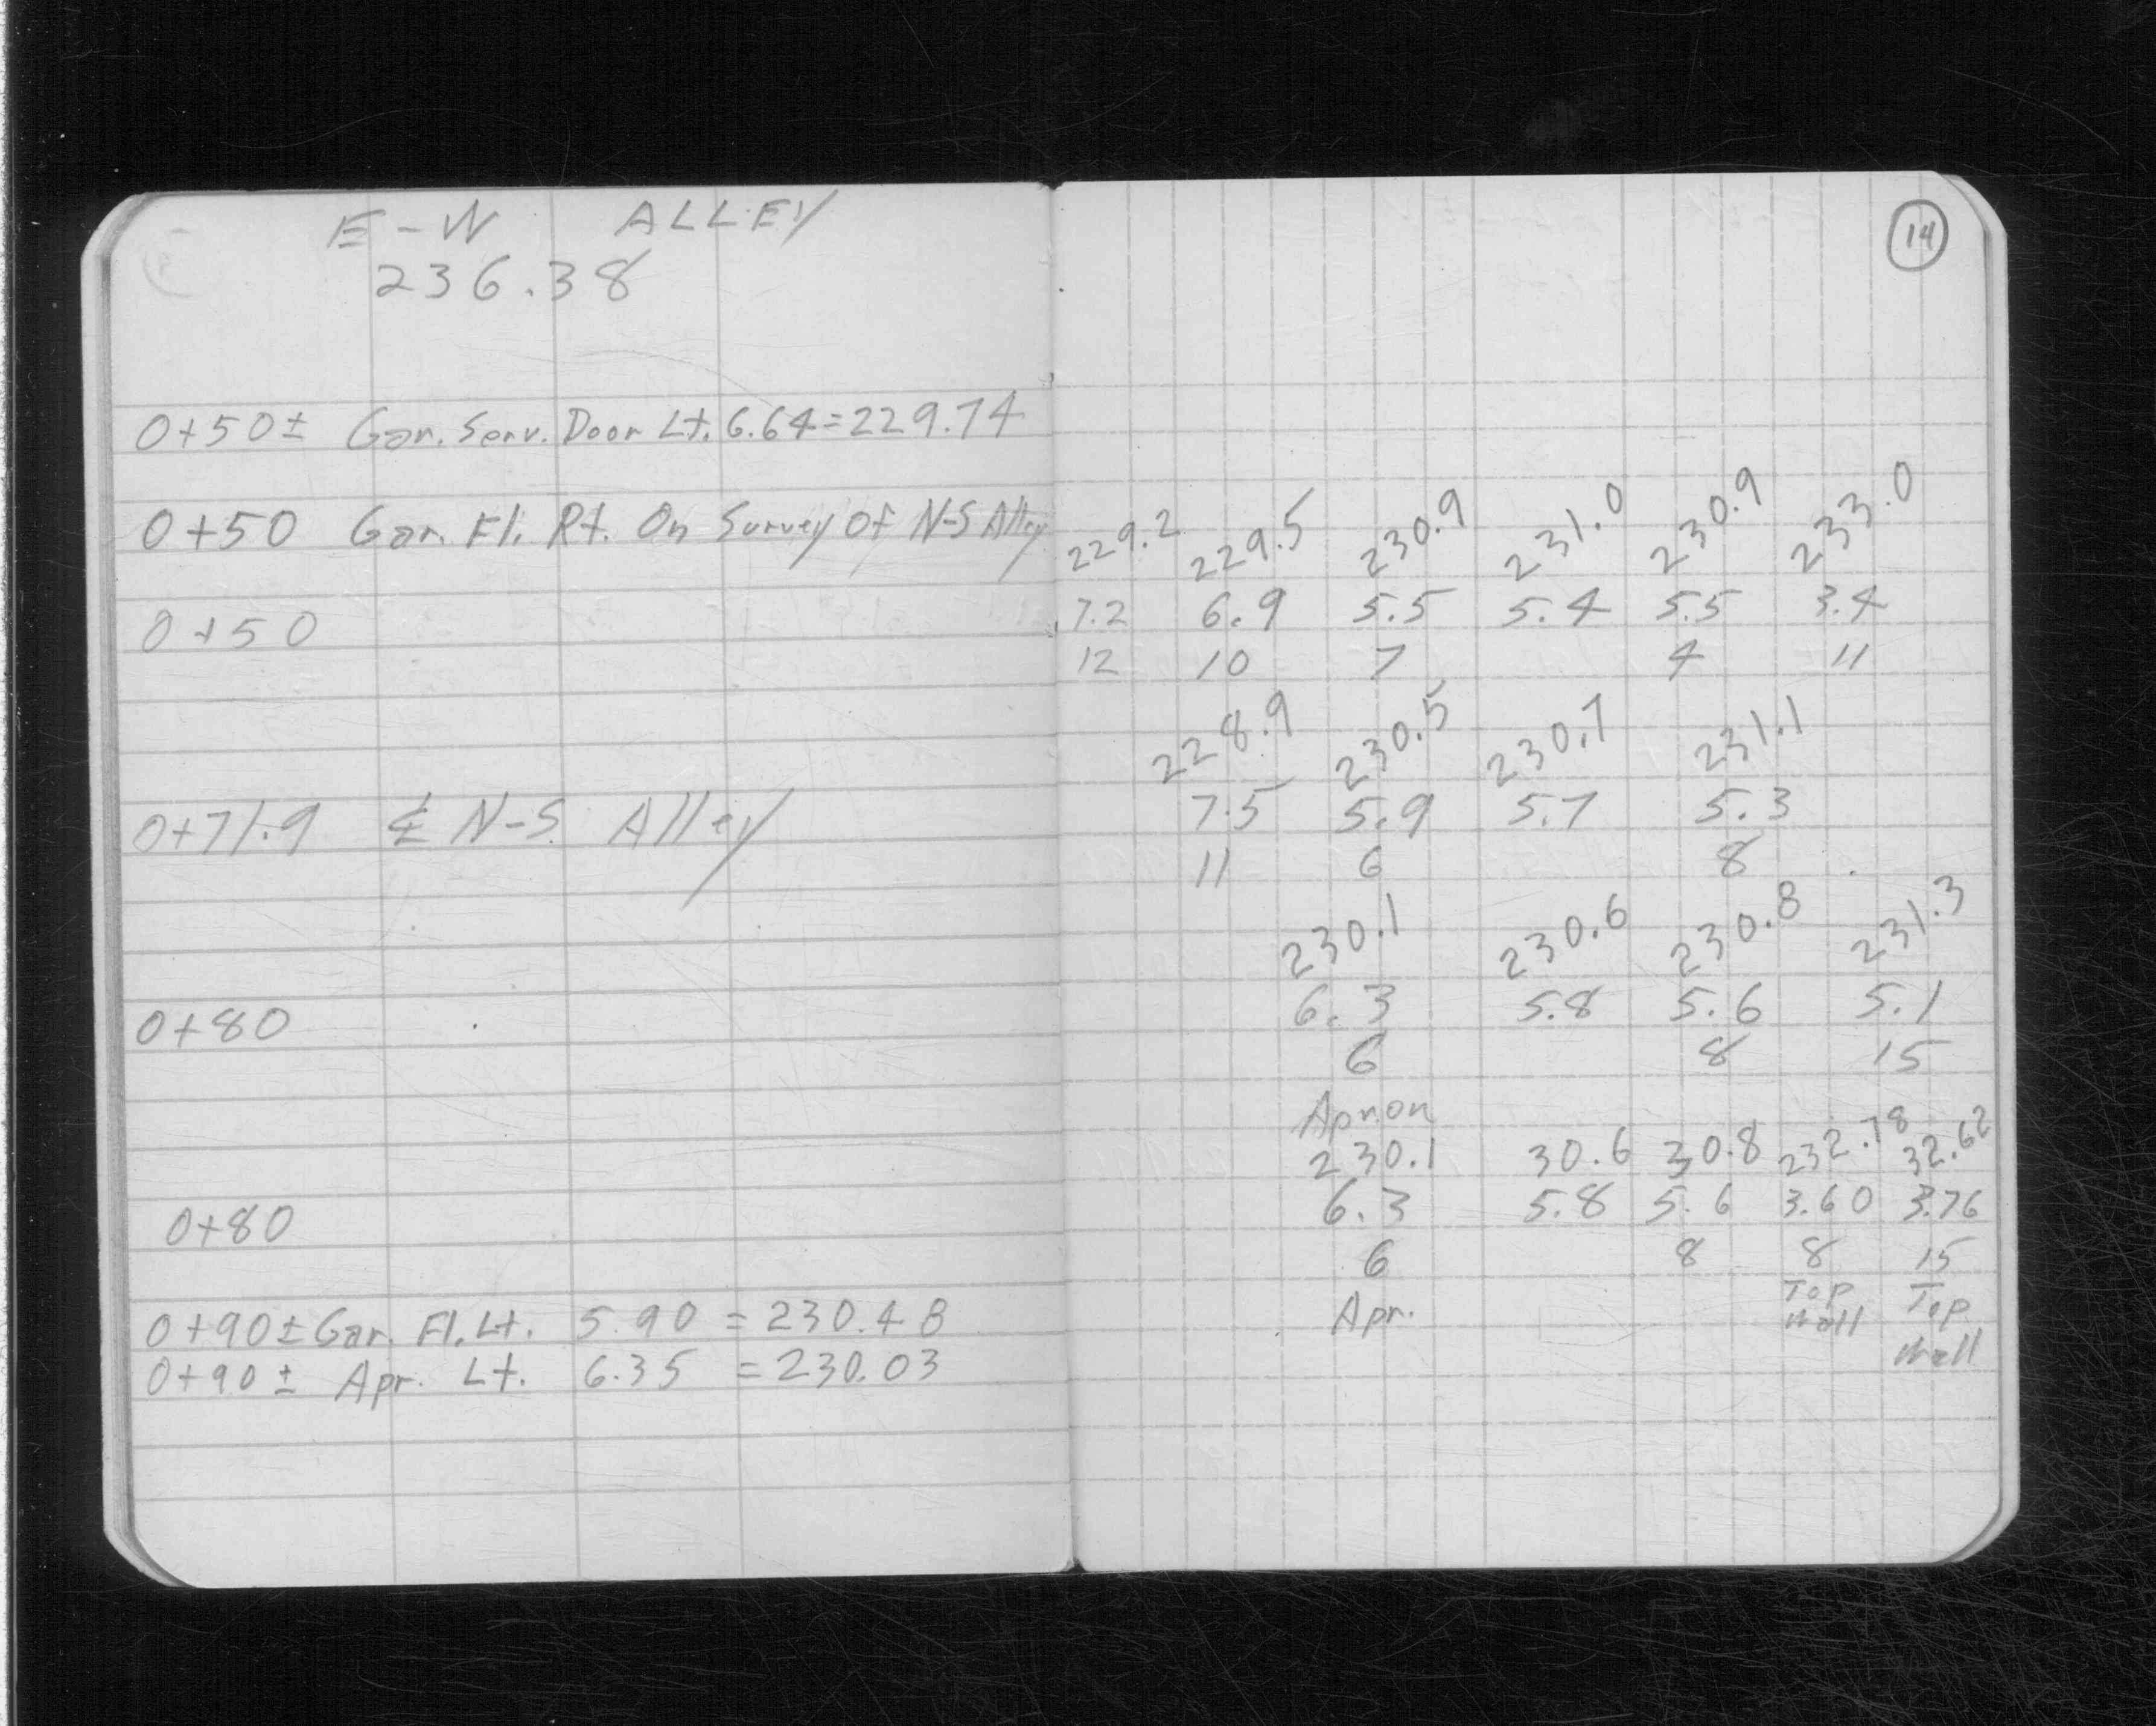 E-W ALLEY
236.38
0+50± Gar. Serv. Door Lt. 6.64=229.74
0+50 Gar. Fl. Rt. On Survey Of N-S Alley
0+50
0+71.9 ℄ N-S Alley
0+80
0+80
0+90± Gar. Fl. Lt. 5.90 = 230.48
0+90± Apr. Lt. 6.35 = 230.03
14
229.2 229.5 230.9 231.0 230.9 233.0
7.2 6.9 5.5 5.4 5.5 3.4
12 10 7 4 11
228.9 230.5 230.7 231.1
7.5 5.9 5.7 5.3
11 6 8
230.1 230.6 230.8 231.3
6.3 5.8 5.6 5.1
6 8 15
Apron
230.1 30.6 30.8 232.78 32.62
6.3 5.8 5.6 3.60 3.76
6 8 8 15
Apr. Top Wall Top Wall